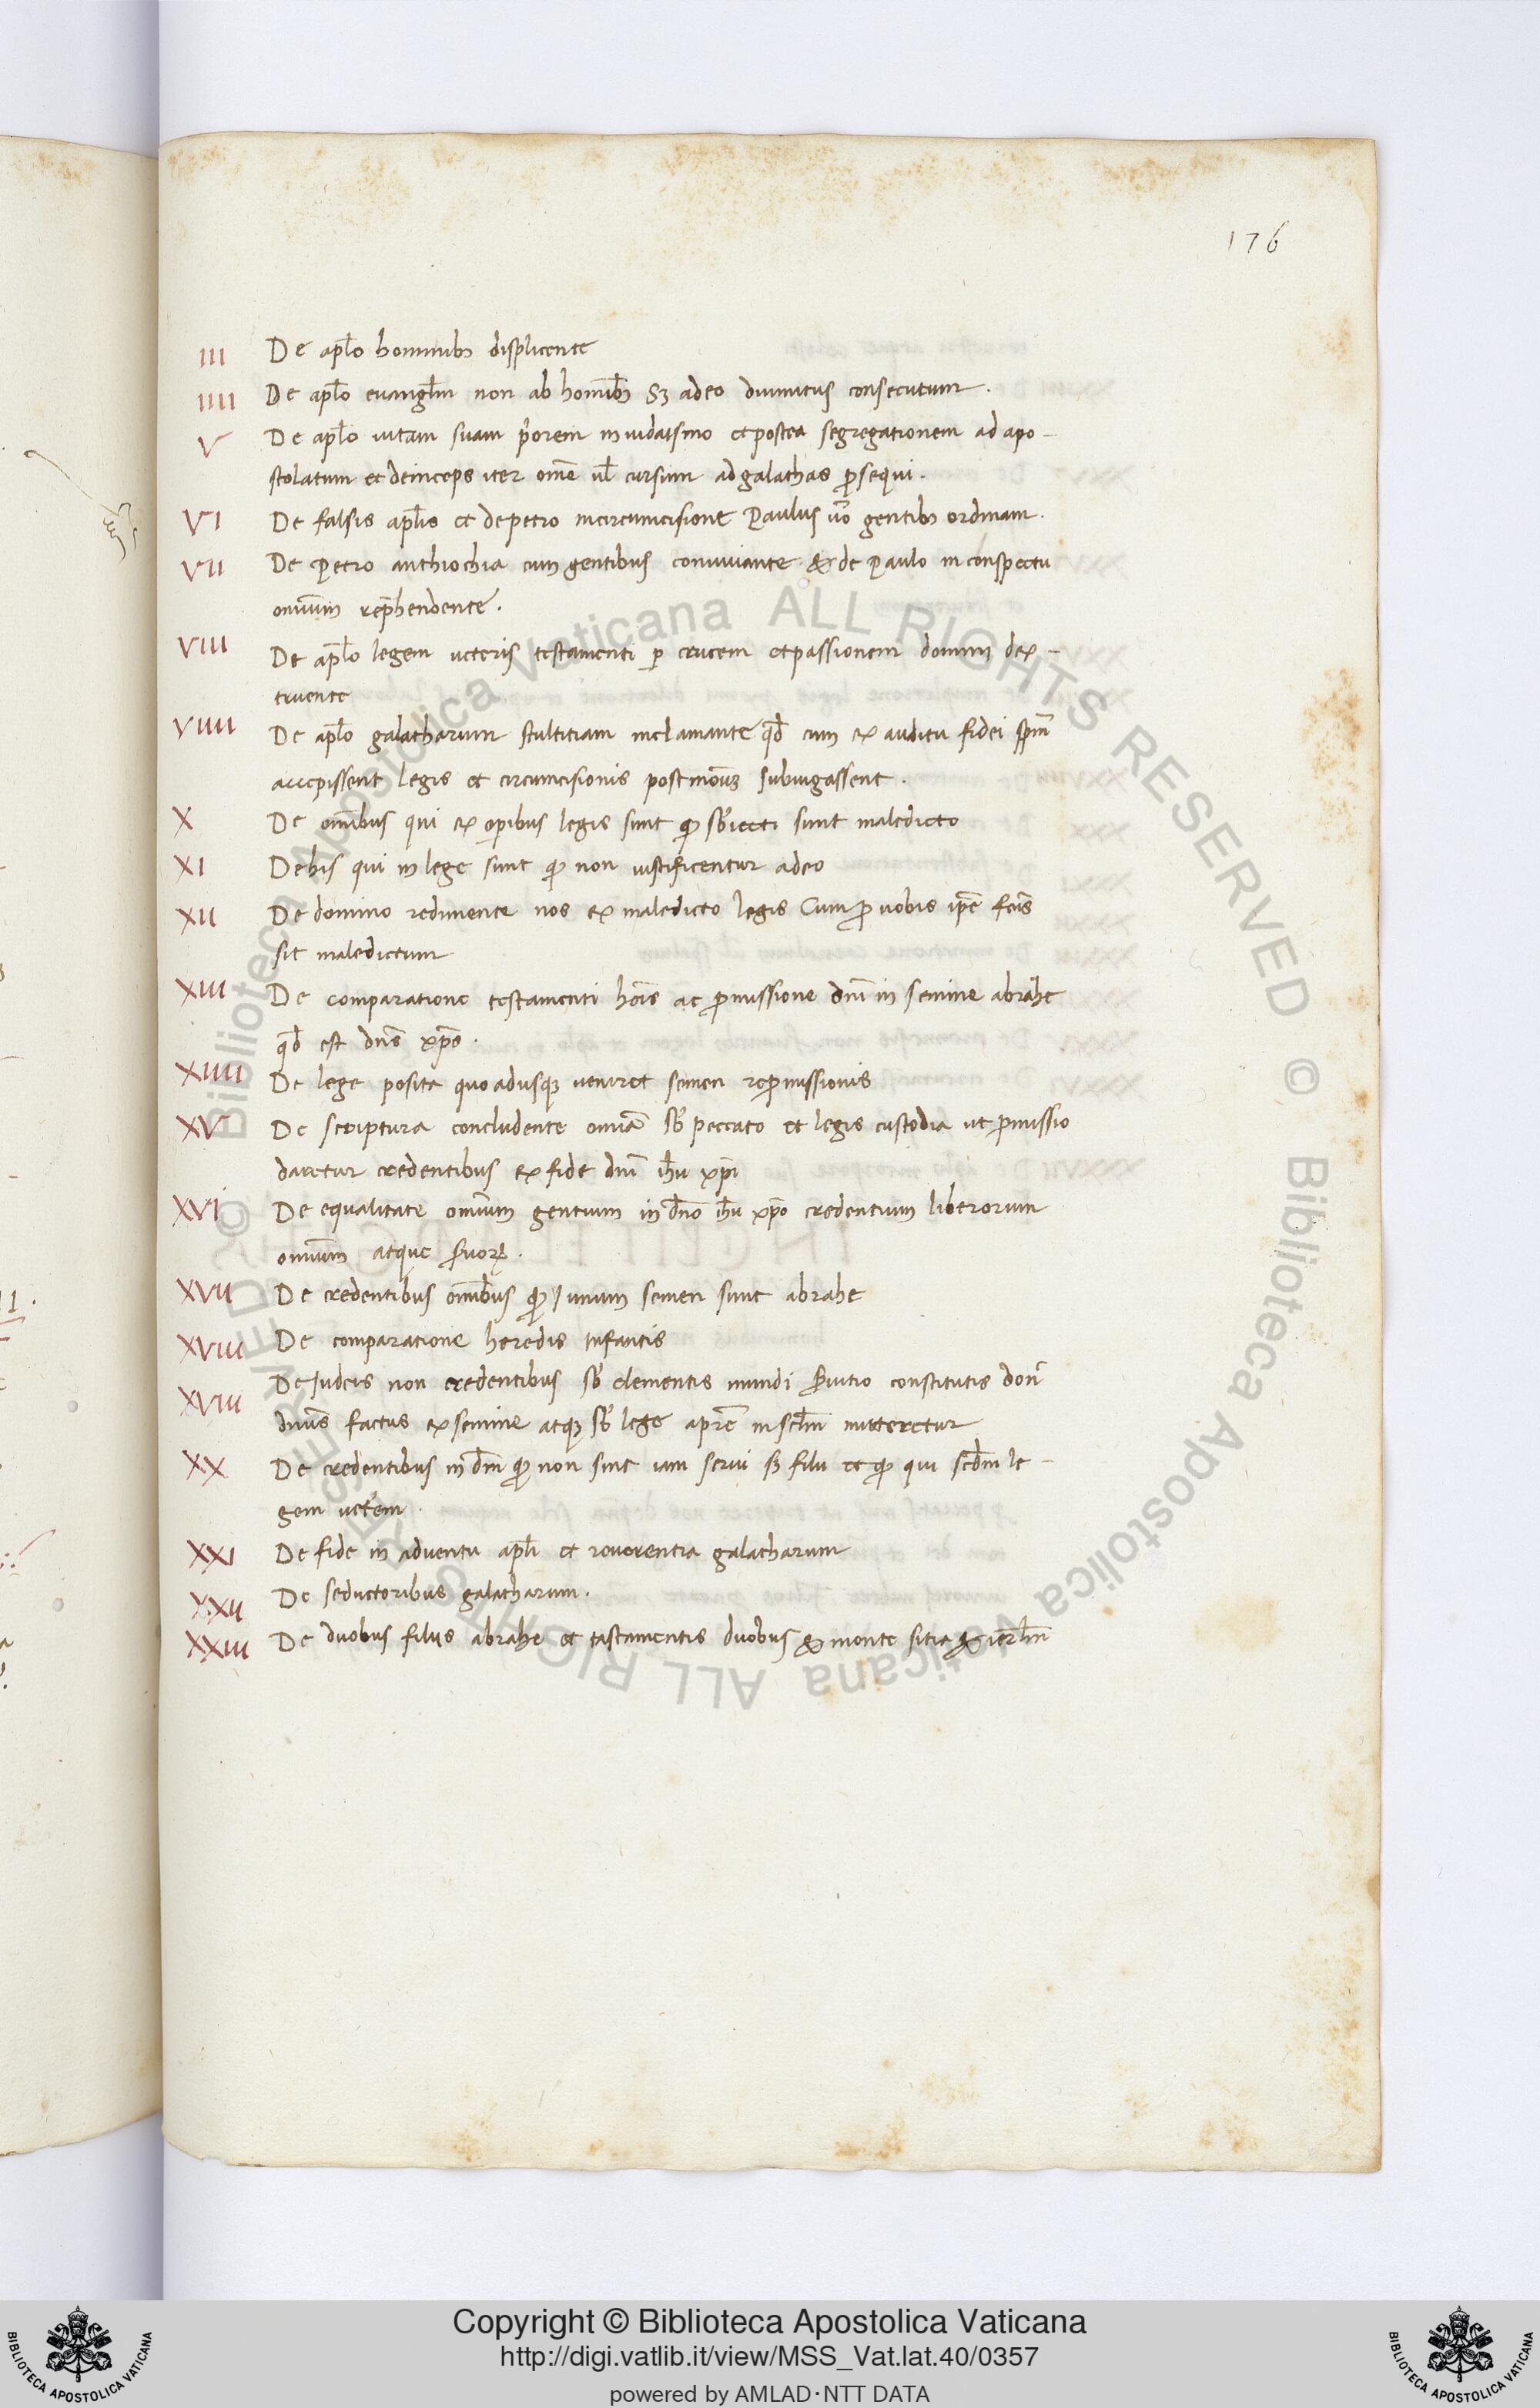 176
III De apl̄o hominibꝫ displicente
IIII De apl̄o euangl̄m non ab homībꝫ Sꝫ adeo diuinitus consecutum .
V De apl̄o uitam suam p̄orem in iudaismo et postea segregationem ad apo-
stolatum et deinceps iter om̄e ul̄ cursum ad galathas ꝓsequi .
VI De falsis apl̄is et de petro in circumcisione Paulus ūo gentibꝫ ordinam .
VII De Petro anthiochia cum gentibus conuiuiante & de Paulo in conspectu
omnium rep̄hendente .
VIII De apl̄o legem ueteris testamenti ꝑ crucem et passionem domini dex-
truente
VIIII De apl̄o galatharum stultitiam inclamante qd̄ cum ex auditu fidei sp̄m
accepissent legis et circumcisionis postmodū subiugassent .
X De omībus qui ex oꝑibus legis sunt ꝙ sb̄iecti sunt maledicto
XI De his qui in lege sunt ꝙ non iustificentur adeo
XII De domino redimente nos ex maledicto legis Cum ꝓ nobis ip̄e fc̄s
sit maledictum
XIII De comparatione testamenti hoīs ac ꝓmissione dn̄i in semine abrahe
qd̄ est dn̄s xp̄s .
XIIII De lege posita quo adusqꝫ ueniret semen reꝓmissionis
XV De scriptura concludente omnia sb̄ peccato et legis custodia ut ꝓmissio
daretur credentibus ex fide dn̄i ih̄u xp̄i
XVI De equalitate omnium gentium in dn̄o ih̄u xp̄o credentium liberorum
omnium atque s̄uorꝝ .
XVII De credentibus omībus ꝙ Iunum semen sunt abrahe
XVIII De comparatione heredis Infantis
XVIII De Iudeis non credentibus sb̄ elementis mundi s̄uitio constitutis don̄
dn̄us factus ex semine atqꝫ sb̄ lege apr̄e in scl̄m mitteretur
XX De credentibus in dn̄m ꝙ non sint iam serui sꝫ filii et ꝙ qui scd̄m le-
gem uet̄em .
XXI De fide in aduentu apl̄i et reuerentia galatharum
XXII De seductoribus galatharum .
XXIII De duobus filiis abrahe et tastamentis duobus & monte sitia & ier̄lm̄
Copyright © Biblioteca Apostolica Vaticana
http://digi.vatlib.it/view/MSS_Vat.lat.40/0357
powered by AMLAD·NTT DATA